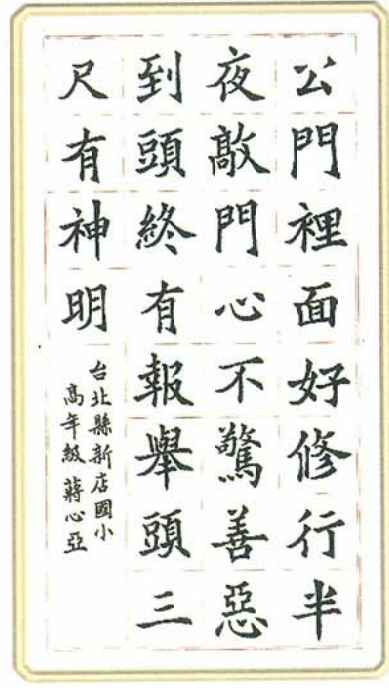 公門裡面好修行半
夜敲門心不驚善惡
到頭終有報舉頭三
尺有神明
台北縣新店國小
高年級蔣心亞